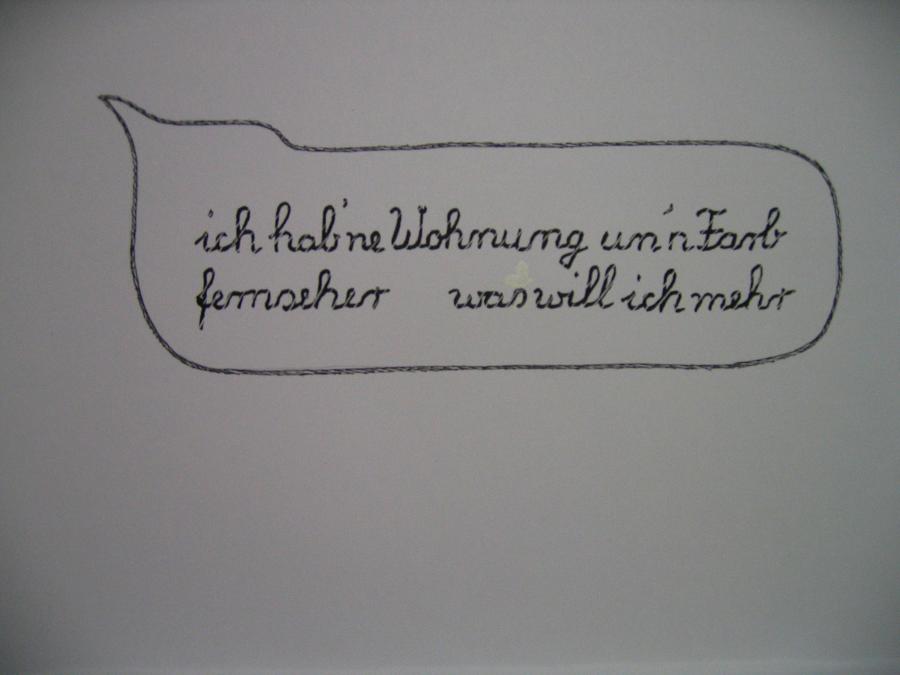 ich hab'ne Wohnung un'n Farb
fernseher was will ich mehr